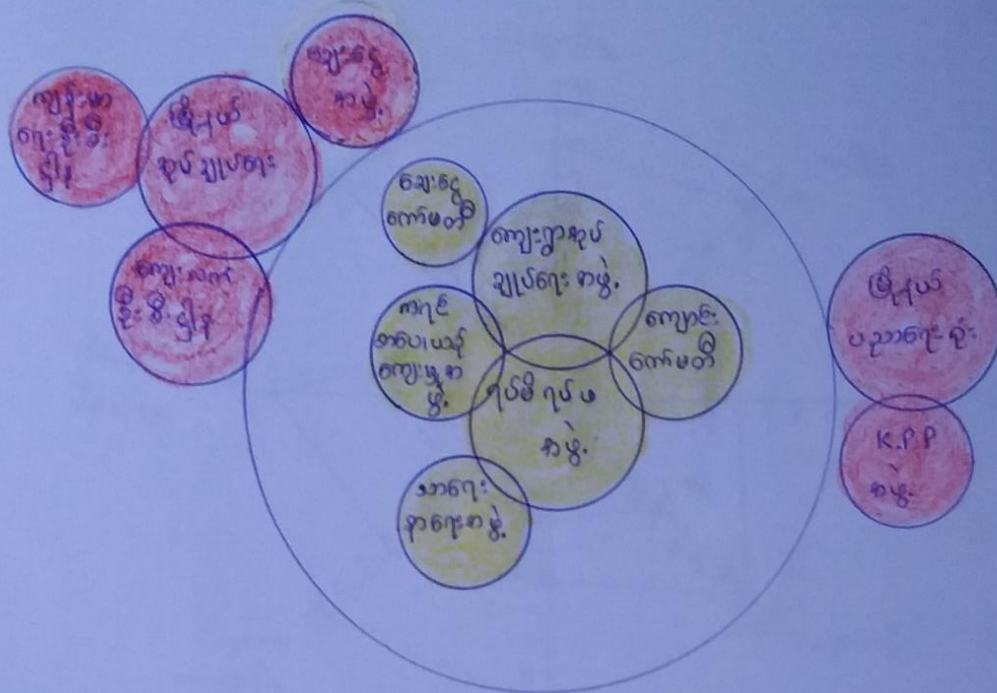 ချေးငွေ
အဖွဲ့
ကျန်းမာ
ရေးဦးစီး
ဌာန
မြို့နယ်
အုပ်ချုပ်ရေး
ကျေးလက်
ဦးစီးဌာန
ချေးငွေ
ကော်မတီ
ကျေးရွာအုပ်
ချုပ်ရေးအဖွဲ့
ကရင်
စာပေယဉ်
ကျေးမှုအ
ဖွဲ့
ကျောင်း
ကော်မတီ
ရပ်မိရပ်ဖ
အဖွဲ့
သာရေး
နာရေးအဖွဲ့
မြို့နယ်
ပညာရေးရုံး
K.P.P
အဖွဲ့